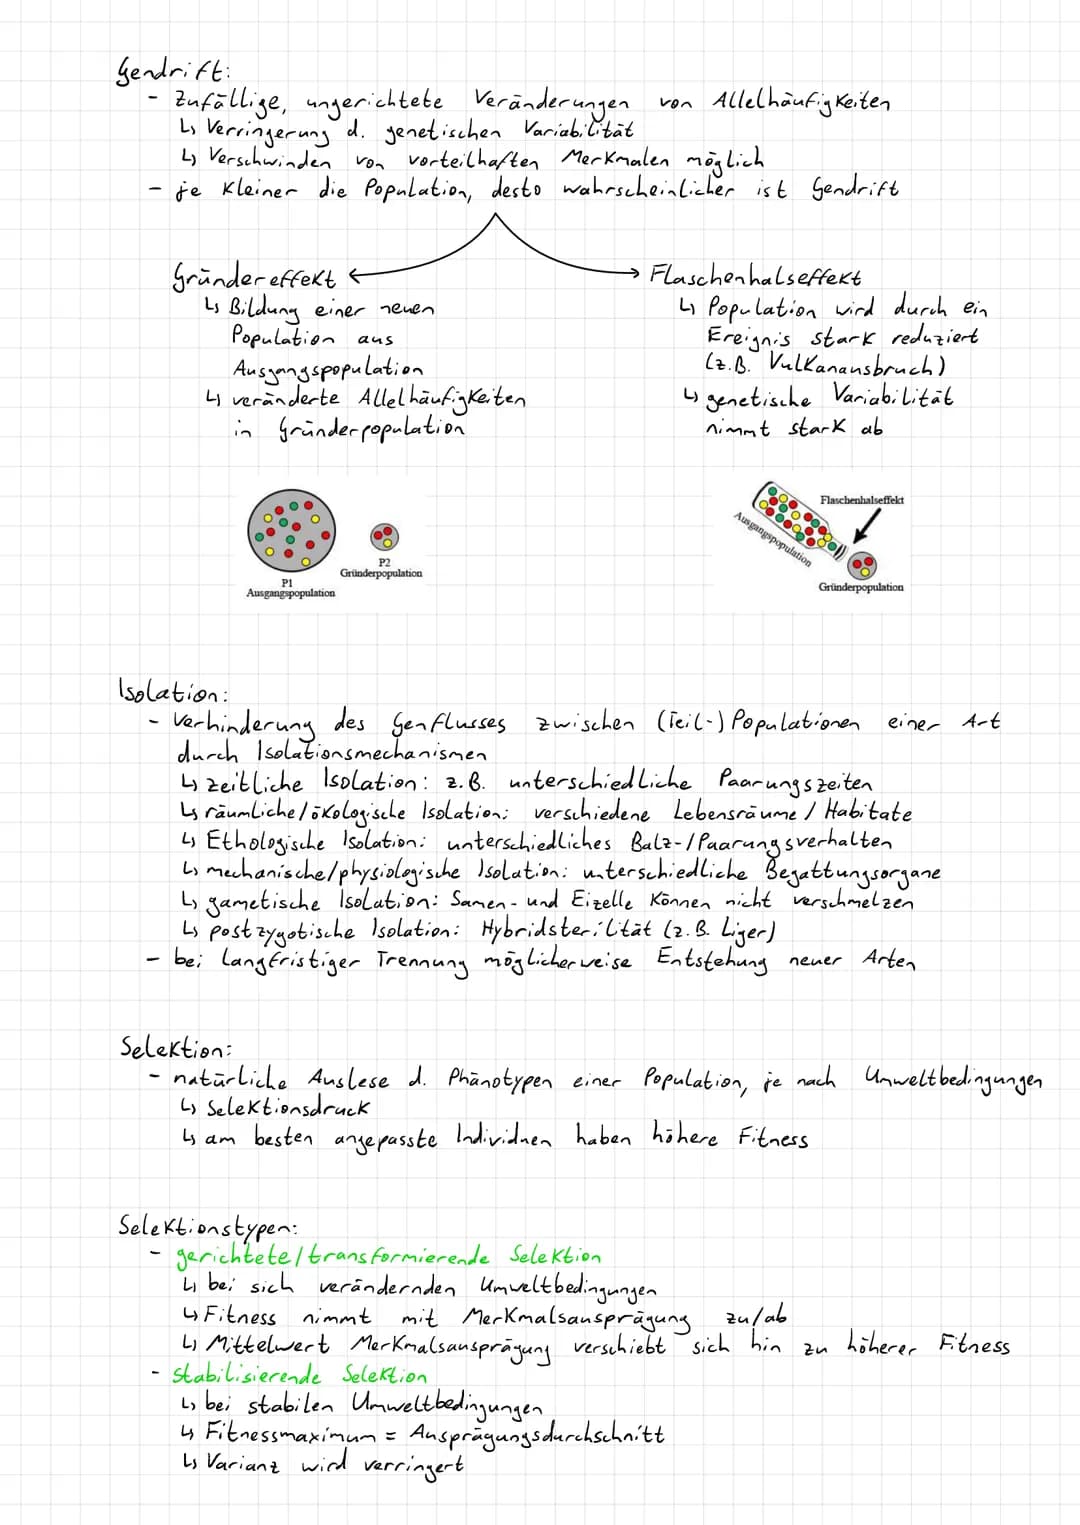 Gendrift:
- Zufällige, ungerichtete Veränderungen von Allelhäufigkeiten
↳ Verringerung d. genetischen Variabilität
↳ Verschwinden von vorteilhaften Merkmalen möglich
- je kleiner die Population, desto wahrscheinlicher ist Gendrift
Gründereffekt
↳ Bildung einer neuen
Population aus
Ausgangspopulation
↳ veränderte Allelhäufigkeiten
in Gründerpopulation
Flaschenhalseffekt
↳ Population wird durch ein
Ereignis stark reduziert
(z.B. Vulkanausbruch)
↳ genetische Variabilität
nimmt stark ab
P1
Ausgangspopulation
P2
Gründerpopulation
Ausgangspopulation
Flaschenhalseffekt
Gründerpopulation
Isolation:
- Verhinderung des Genflusses zwischen (Teil-) Populationen einer Art
durch Isolationsmechanismen
↳ zeitliche Isolation: z.B. unterschiedliche Paarungszeiten
↳ räumliche/ökologische Isolation: verschiedene Lebensräume / Habitate
↳ Ethologische Isolation: unterschiedliches Balz-/Paarungsverhalten
↳ mechanische/physiologische Isolation: unterschiedliche Begattungsorgane
↳ gametische Isolation: Samen- und Eizelle können nicht verschmelzen
↳ postzygotische Isolation: Hybridsterilität (z.B. Liger)
- bei langfristiger Trennung möglicherweise Entstehung neuer Arten
Selektion:
- natürliche Auslese d. Phänotypen einer Population, je nach Umweltbedingungen
↳ Selektionsdruck
↳ am besten angepasste Individuen haben höhere Fitness
Selektionstypen:
- gerichtete/transformierende Selektion
↳ bei sich verändernden Umweltbedingungen
↳ Fitness nimmt mit Merkmalsausprägung zu/ab
↳ Mittelwert Merkmalsausprägung verschiebt sich hin zu höherer Fitness
- Stabilisierende Selektion
↳ bei stabilen Umweltbedingungen
↳ Fitnessmaximum = Ausprägungsdurchschnitt
↳ Varianz wird verringert